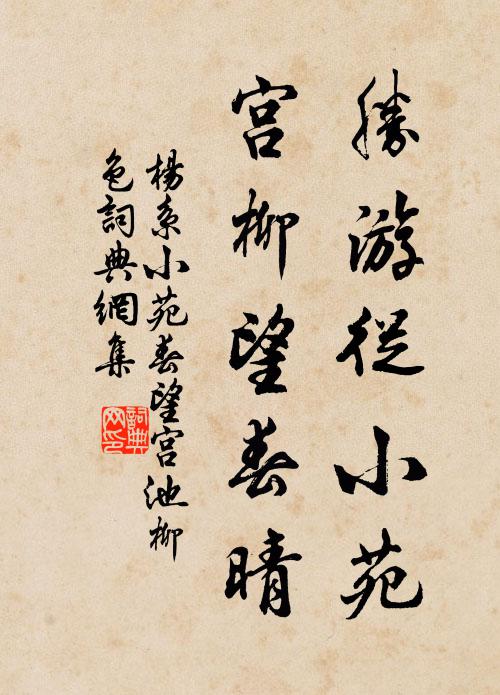 勝游從小苑
宮柳望春晴
楊系小苑春望宮池柳
色詞典網集
詞典
网印